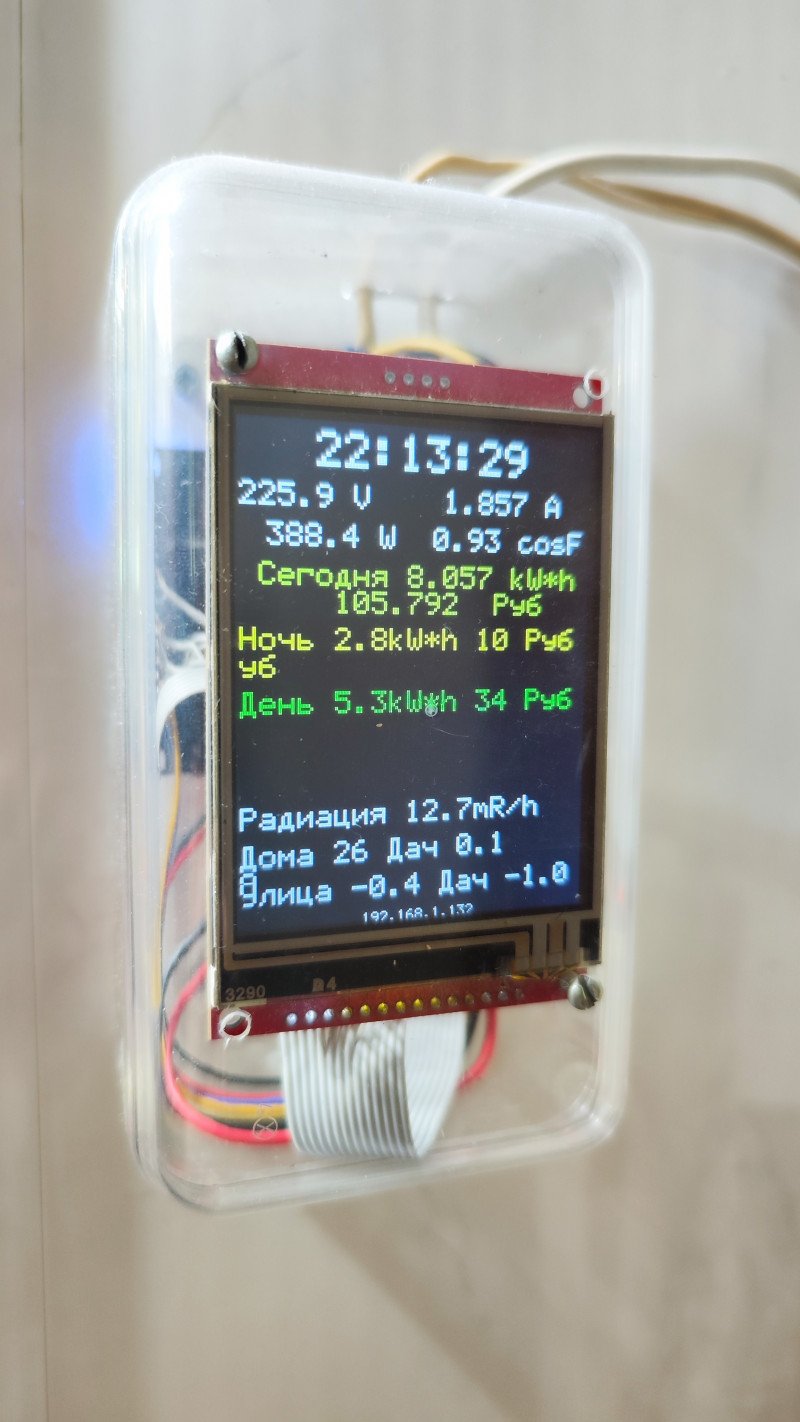 22:13:29
225.9 V 1.857 A
388.4 W 0.93 cosF
Сегодня 8.057 kW*h
105.792 Руб
Ночь 2.8kW*h 10 Руб
уб
День 5.3kW*h 34 Руб
Радиация 12.7mR/h
Дома 26 Дач 0.1
Улица -0.4 Дач -1.0
192.168.1.132
3290